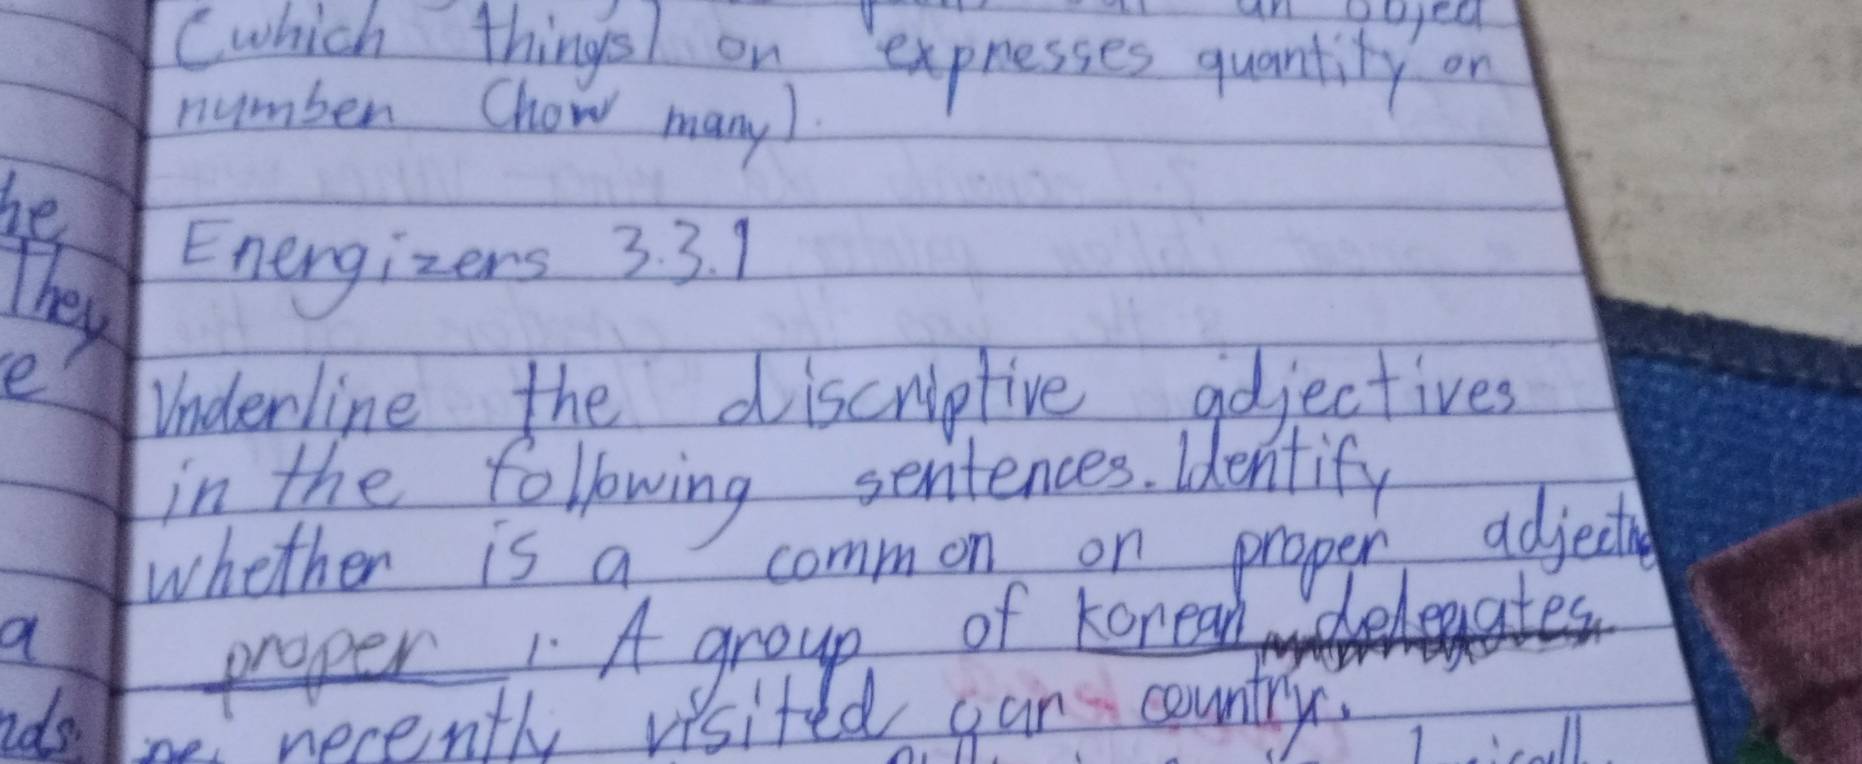 an object
(which things) or expresses quantity or
number (how many).
Energizers 3.3.1
Underline the discriptive adjectives
in the following sentences. Identify
whether is a common or proper adjective
proper 1. A group of korean delegates
recently visited our country.
he
They
e
a
nds